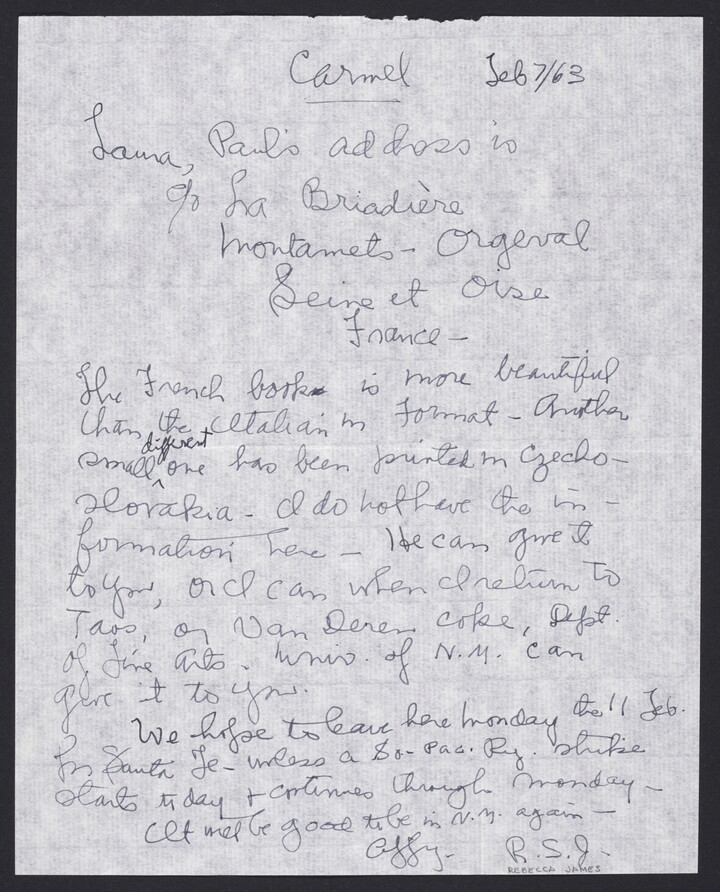 Carmel Feb 7/63
Laura, Paul's address is
c/o La Briadière
Montamets - Orgeval
Seine et Oise
France -
The French book is more beautiful
than the Italian in format - Another
different
small one has been printed in Czecho-
slovakia - I do not have the in-
formation here - He can give it
to you, or I can when I return to
Taos, or Van Deren Coke, Dept.
of Fine Arts. Univ. of N.M. can
give it to you.
We hope to leave here Monday the 11 Feb.
for Santa Fe - unless a So- Pac. Ry. strike
starts today + continues through Monday -
It will be good to be in N.M. again -
Affy- R.S.J-
REBECCA JAMES